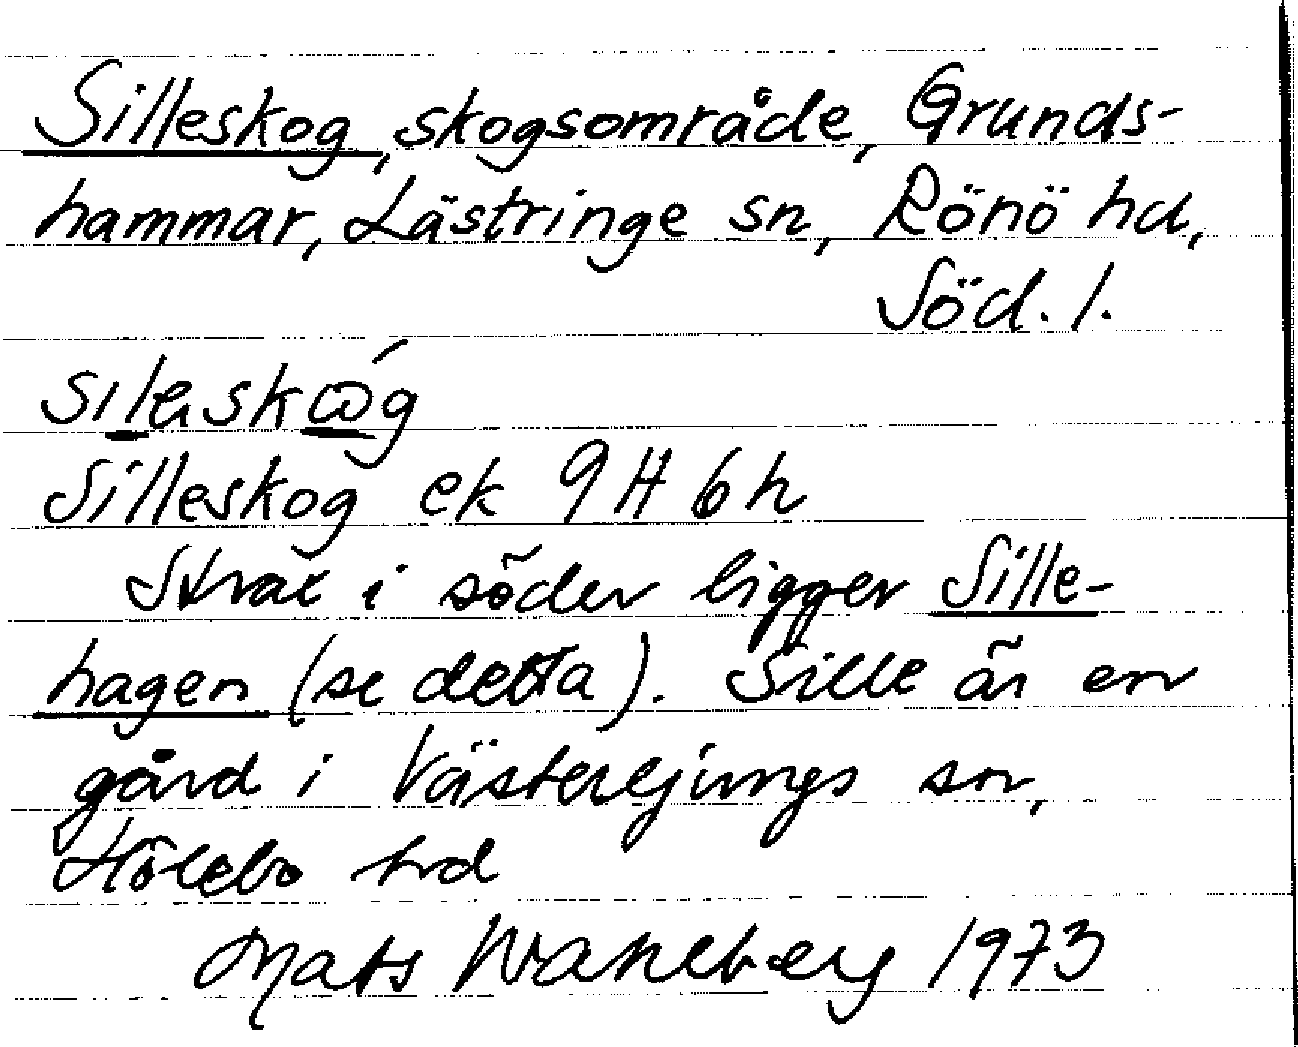 Silleskog, skogsområde, Grunds-
hammar, Lästringe sn, Rönö hd,
Söd. l.
Silleskog ek 9H6h
Strax i söder ligger Sille-
hagen (se detta). Sille är en
gård i Västerljungs sn,
Hölebo hd
Mats Wahlberg 1973